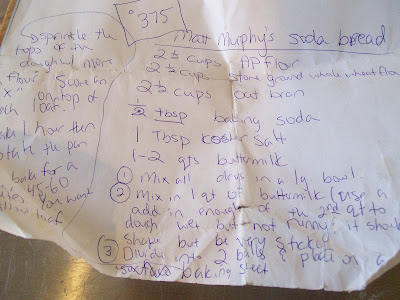 °375
Matt Murphy's soda bread
2 ½ cups AP flour
2 ½ cups stone ground whole wheat flou
2 ½ cups oat bran
½ tbsp baking soda
1 Tbsp kosher salt
1-2 qts buttermilk
① Mix all drys in a lg bowl
② Mix in 1 qt of buttermilk (use a
add in enough of the 2nd qt to
dough wet but not runny it shou
shape but be very sticky
③ Divide into 2 balls & place on a
baking sheet
sprinkle the
tops of the
dough w/ more
flour. Score an
"x" on top of
each loaf.
1 hour then
rotate the pan
bake for a
45-60
you want